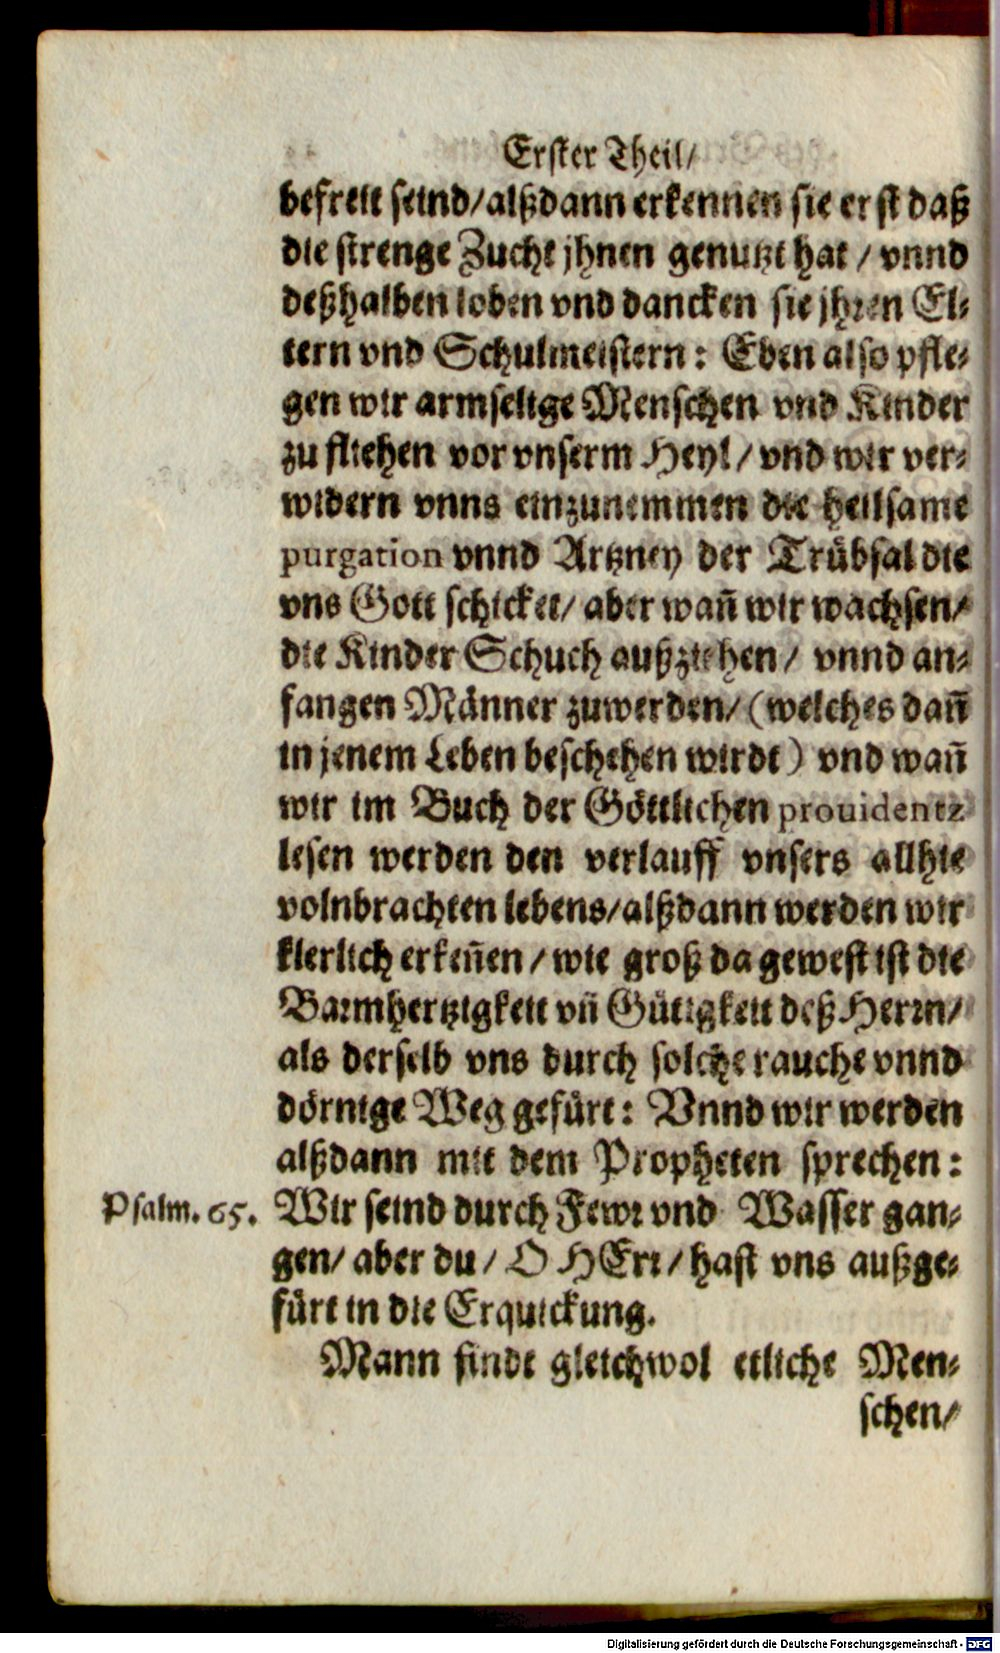 Erster Theil/
befreit seind/alßdann erkennen sie erst daß
die strenge Zucht jhnen genutzt hat / vnnd
deßhalben loben vnd dancken sie jhren El-
tern vnd Schulmeistern: Eben also pfle-
gen wir armselige Menschen vnd Kinder
zu fliehen vor vnserm Heyl / vnd wir ver-
widern vnns einzunemmen die heilsame
purgation vnnd Artzney der Trübsal die
vns Gott schicket/ aber wañ wir wachsen/
die Kinder Schuch außziehen / vnnd an-
fangen Männer zuwerden/ (welches dañ
in jenem Leben beschehen wirdt) vnd wañ
wir im Buch der Göttlichen prouidentz
lesen werden den verlauff vnsers allhie
volnbrachten lebens/alßdann werden wir
klerlich erkeñen / wie groß da gewest ist die
Barmhertzigkeit vñ Gütigkeit deß Herrn/
als derselb vns durch solche rauche vnnd
dörnige Weg gefürt: Vnnd wir werden
alßdann mit dem Propheten sprechen:
Psalm. 65. Wir seind durch Fewr vnd Wasser gan-
gen/ aber du / O HErr / hast vns außge-
fürt in die Erquickung.
Mann findt gleichwol etliche Men-
schen/
Digitalisierung gefördert durch die Deutsche Forschungsgemeinschaft - DFG